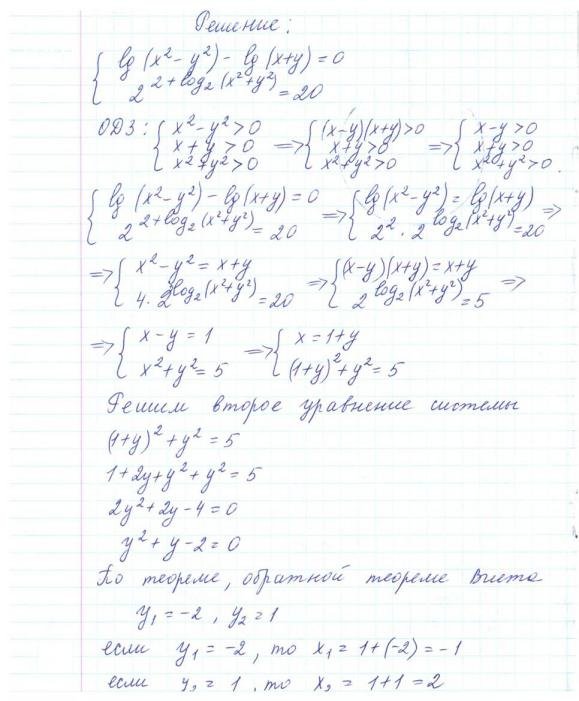 Решение:
{ lg (x² - y²) - lg (x+y) = 0
2^(2+log₂(x²+y²)) = 20
ОДЗ: { x² - y² > 0 => { (x-y)(x+y) > 0 => { x - y > 0
x + y > 0 x + y > 0 x + y > 0
x² + y² > 0 x² + y² > 0 x² + y² > 0.
{ lg (x² - y²) - lg (x+y) = 0 => { lg (x² - y²) = lg (x+y) =>
2^(2+log₂(x²+y²)) = 20 2² · 2^(log₂(x²+y²)) = 20
=> { x² - y² = x + y => { (x-y)(x+y) = x+y =>
4 · 2^(log₂(x²+y²)) = 20 2^(log₂(x²+y²)) = 5
=> { x - y = 1 => { x = 1 + y
x² + y² = 5 (1+y)² + y² = 5
Решим второе уравнение системы
(1+y)² + y² = 5
1 + 2y + y² + y² = 5
2y² + 2y - 4 = 0
y² + y - 2 = 0
По теореме, обратной теореме Виета
y₁ = -2, y₂ = 1
если y₁ = -2, то x₁ = 1 + (-2) = -1
если y₂ = 1, то x₂ = 1 + 1 = 2